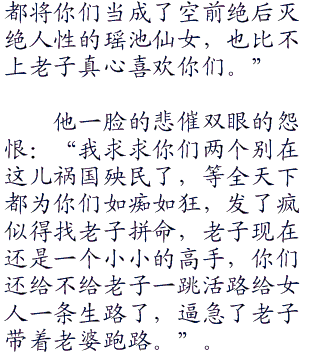 都将你们当成了空前绝后灭
绝人性的瑶池仙女，也比不
上老子真心喜欢你们。”
他一脸的悲催双眼的怨
恨：“我求求你们两个别在
这儿祸国殃民了，等全天下
都为你们如痴如狂，发了疯
似得找老子拼命，老子现在
还是一个小小的高手，你们
还给不给老子一跳活路给女
人一条生路了，逼急了老子
带着老婆跑路。”。